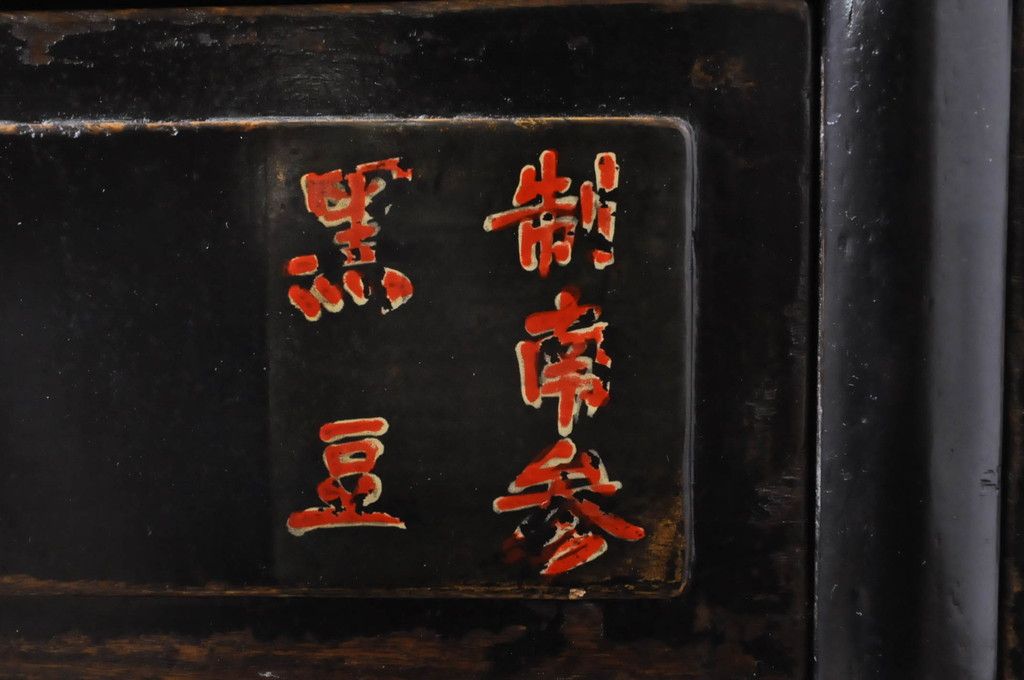 制南参
黑豆